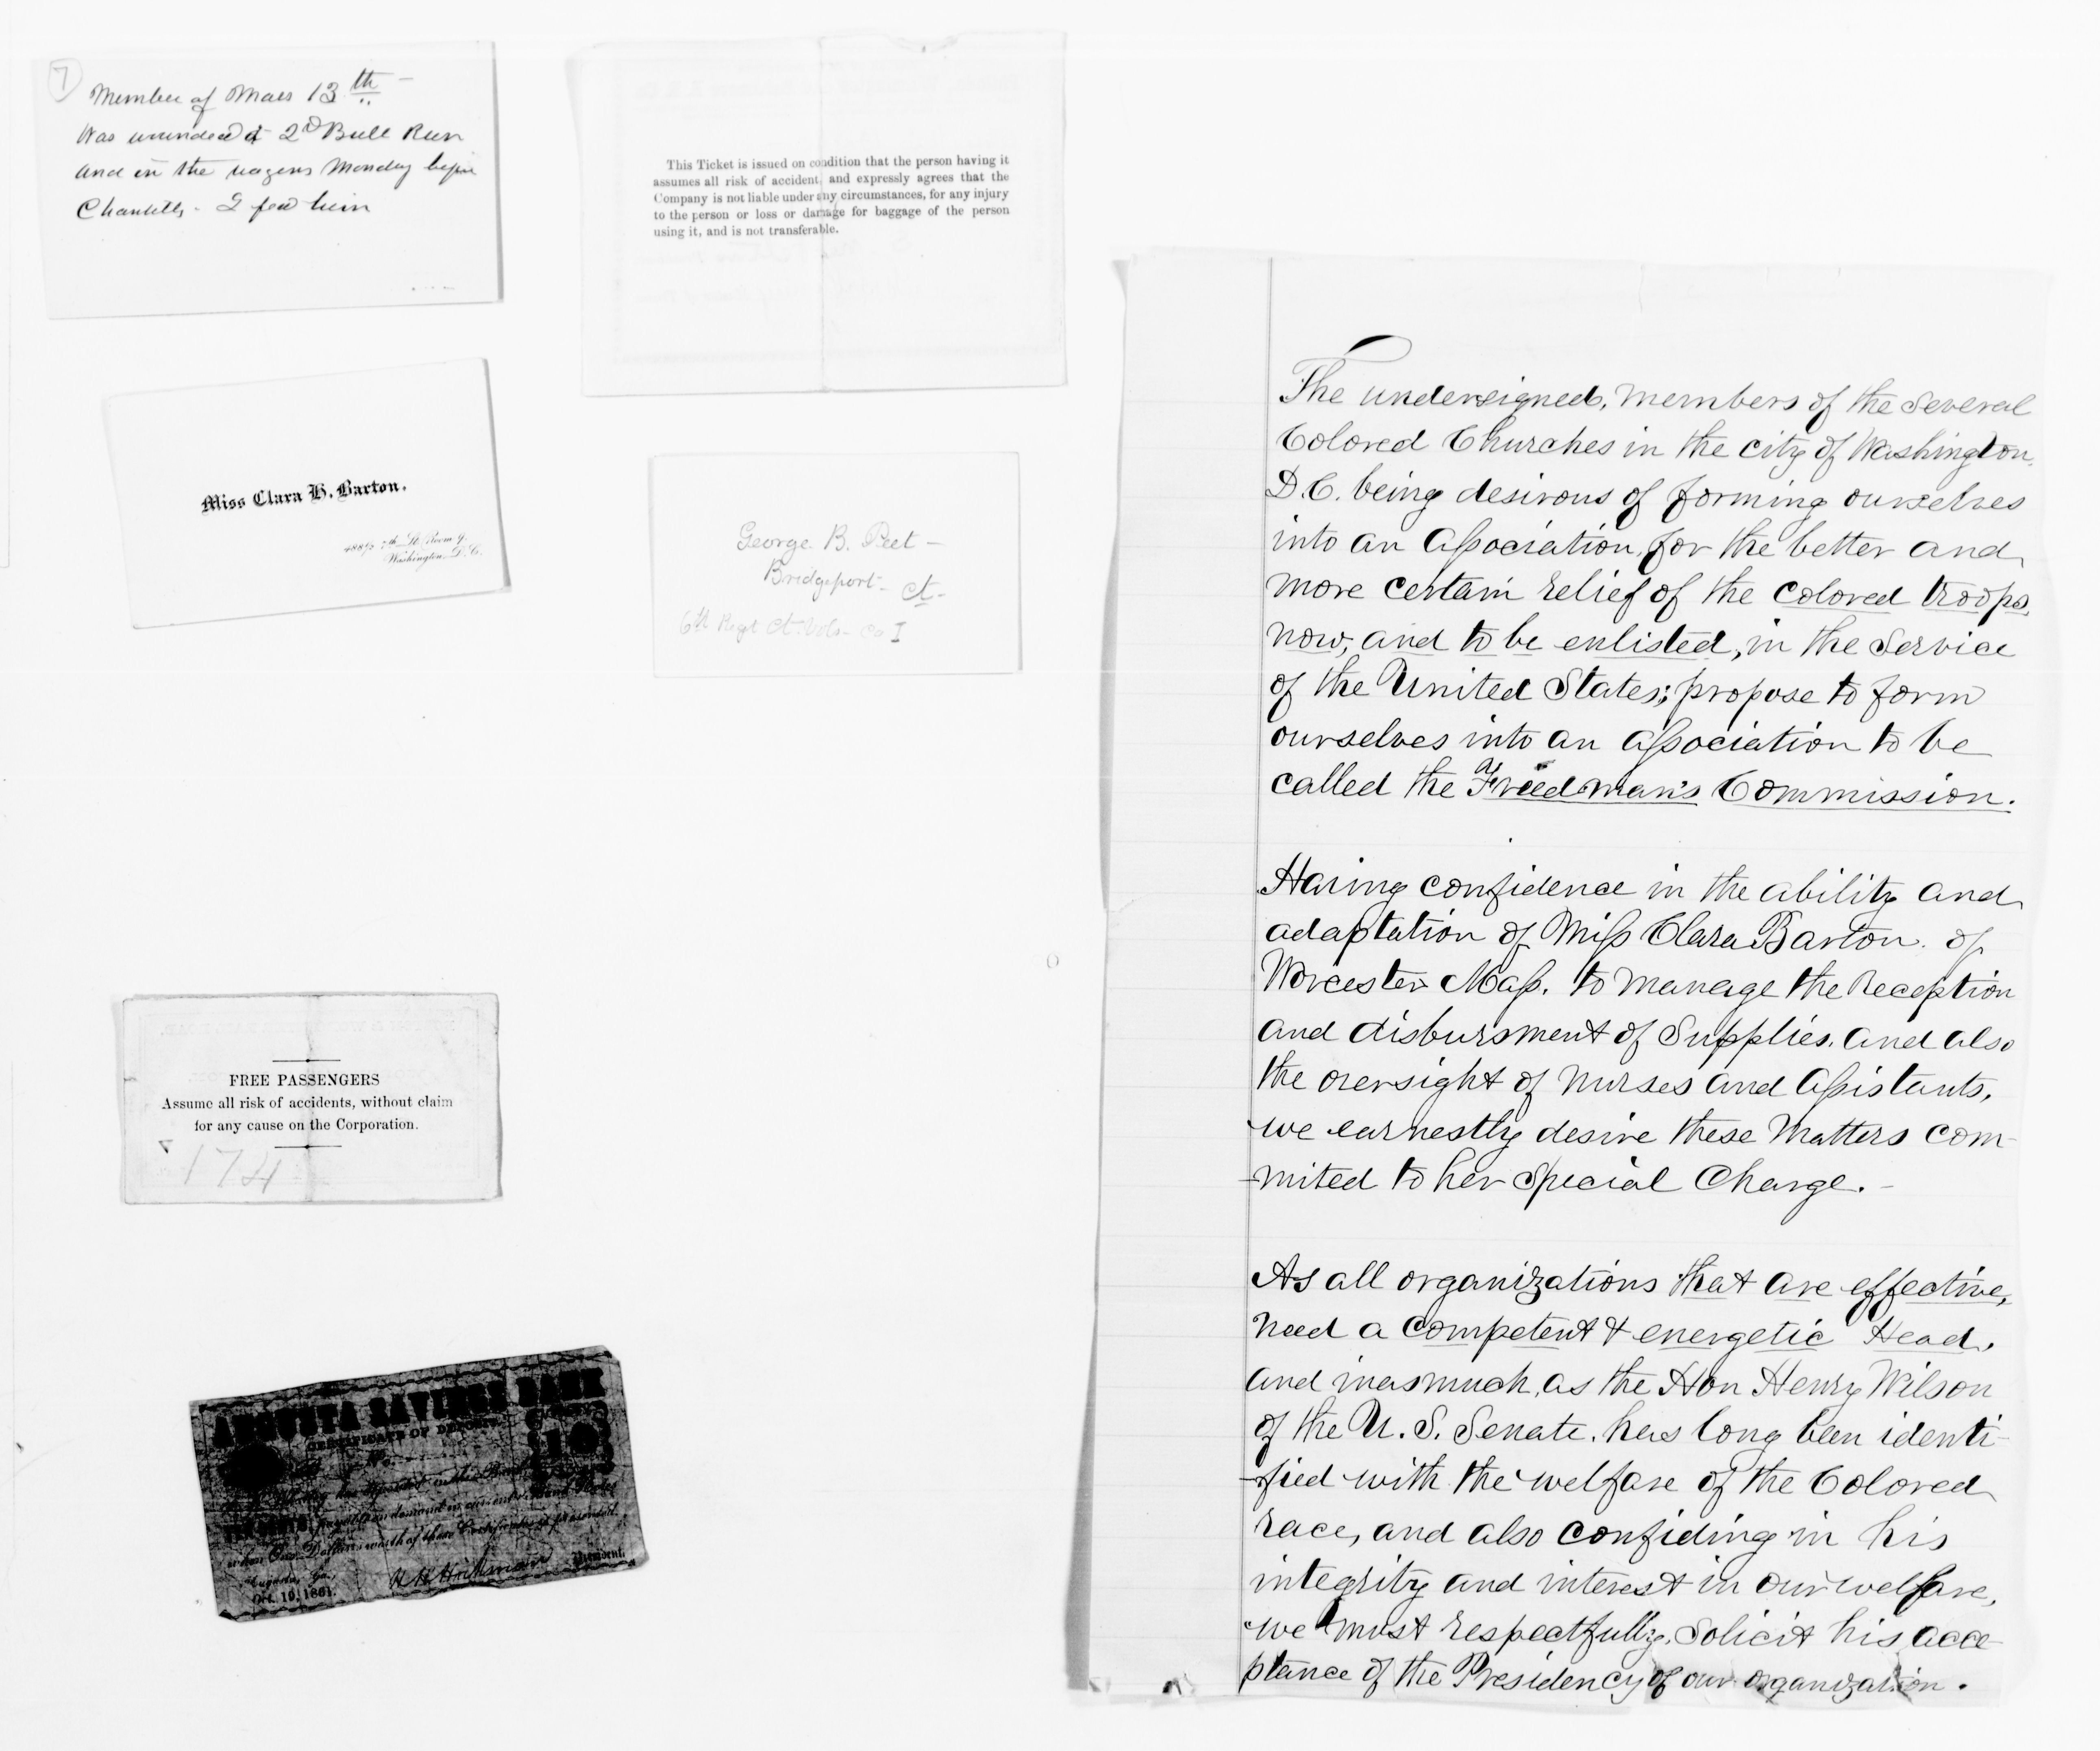 7
Member of Mass 13th —
Was wounded at 2D Bull Run
and in the wagons Monday before
Chantilly - I fed him
This Ticket is issued on condition that the person having it
assumes all risk of accident, and expressly agrees that the
Company is not liable under any circumstances, for any injury
to the person or loss or damage for baggage of the person
using it, and is not transferable.
Miss Clara H. Barton.
488½ 7th St. Room 9.
Washington, D.C.
George B. Peet —
Bridgeport - Ct -
6th Regt Ct. Vols - Co I
FREE PASSENGERS
Assume all risk of accidents, without claim
for any cause on the Corporation.
174
AUGUSTA SAVINGS BANK
CERTIFICATE OF DEPOSIT
No.
has deposited in this Bank
payable on demand in current Bank Notes
when One Dollars worth of these Certificates is presented.
Augusta, Ga.,
Oct. 19, 1861.
H H Hickman President.
The undersigned, members of the several
Colored Churches in the city of Washington,
D.C. being desirous of forming ourselves
into an Association, for the better and
more certain relief of the colored troops,
now, and to be enlisted, in the service
of the United States; propose to form
ourselves into an association to be
called the Freedman's Commission.
Having confidence in the ability and
adaptation of Miss Clara Barton. of
Worcester Mass. to manage the Reception
and disbursment of Supplies. and also
the oversight of nurses and Assistants,
we earnestly desire these Matters com-
-mited to her Special Charge. -
As all organizations that are effective,
need a competent & energetic Head,
and inasmuch, as the Hon Henry Wilson
of the U. S. Senate. has long been identi-
-fied with the welfare of the Colored
race, and also confiding in his
integrity and interest in our welfare,
we most respectfully, Solicit his acce-
ptance of the Presidency of our organization.